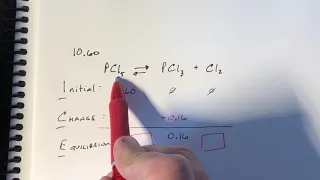 10.60
PCl₅ ⇌ PCl₃ + Cl₂
Initial: 60 ∅ ∅
Change: 0.16
Equilibrium 0.16